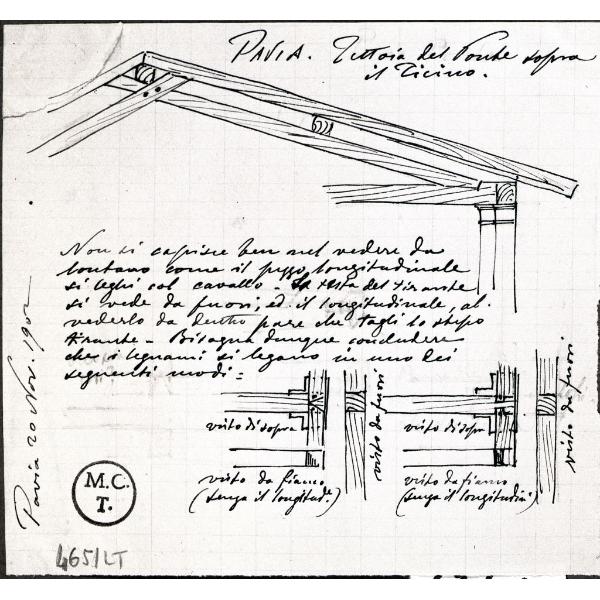 PAVIA. Tettoia del Ponte sopra
il Ticino.
Non si capisce ben nel vedere da
lontano come il pezzo longitudinale
si leghi col cavallo - La testa del tirante
si vede da fuori, ed il longitudinale, al
vederlo da dentro pare che tagli lo stesso
tirante - Bisogna dunque concludere
che i legnami si legano in uno dei
seguenti modi:
visto di sopra
visto da fuori
visto di sopra
visto da fuori
visto da fianco
(senza il longitud.e)
visto da fianco
(senza il longitudin)
Pavia 20 Nov. 1902
M.C.
T.
465/LT